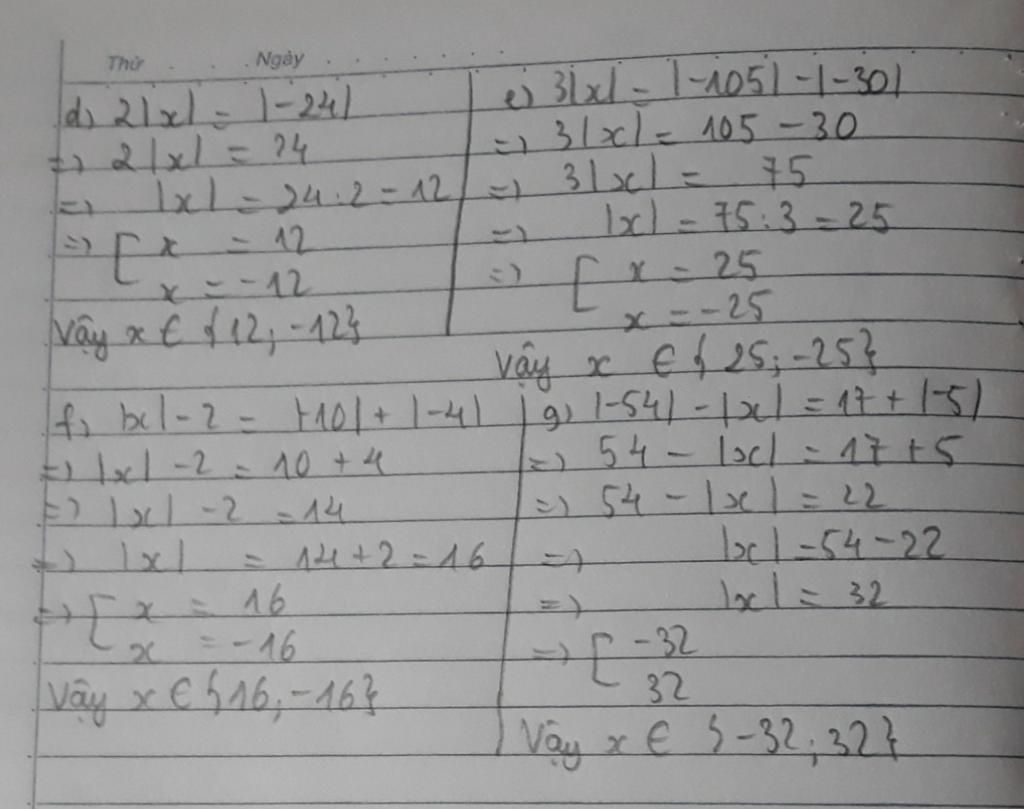 Thứ Ngày
d, 2|x| = |-24|
=> 2|x| = 24
=> |x| = 24:2 = 12
=> [ x = 12
x = -12
Vậy x ∈ {12; -12}
e) 3|x| = |-105| - |-30|
=> 3|x| = 105 - 30
=> 3|x| = 75
=> |x| = 75:3 = 25
=> [ x = 25
x = -25
Vậy x ∈ {25; -25}
f, |x| - 2 = |-10| + |-4|
=> |x| - 2 = 10 + 4
=> |x| - 2 = 14
=> |x| = 14 + 2 = 16
=> [ x = 16
x = -16
Vậy x ∈ {16; -16}
g, |-54| - |x| = 17 + |-5|
=> 54 - |x| = 17 + 5
=> 54 - |x| = 22
=> |x| = 54 - 22
=> |x| = 32
=> [ -32
32
Vậy x ∈ {-32; 32}